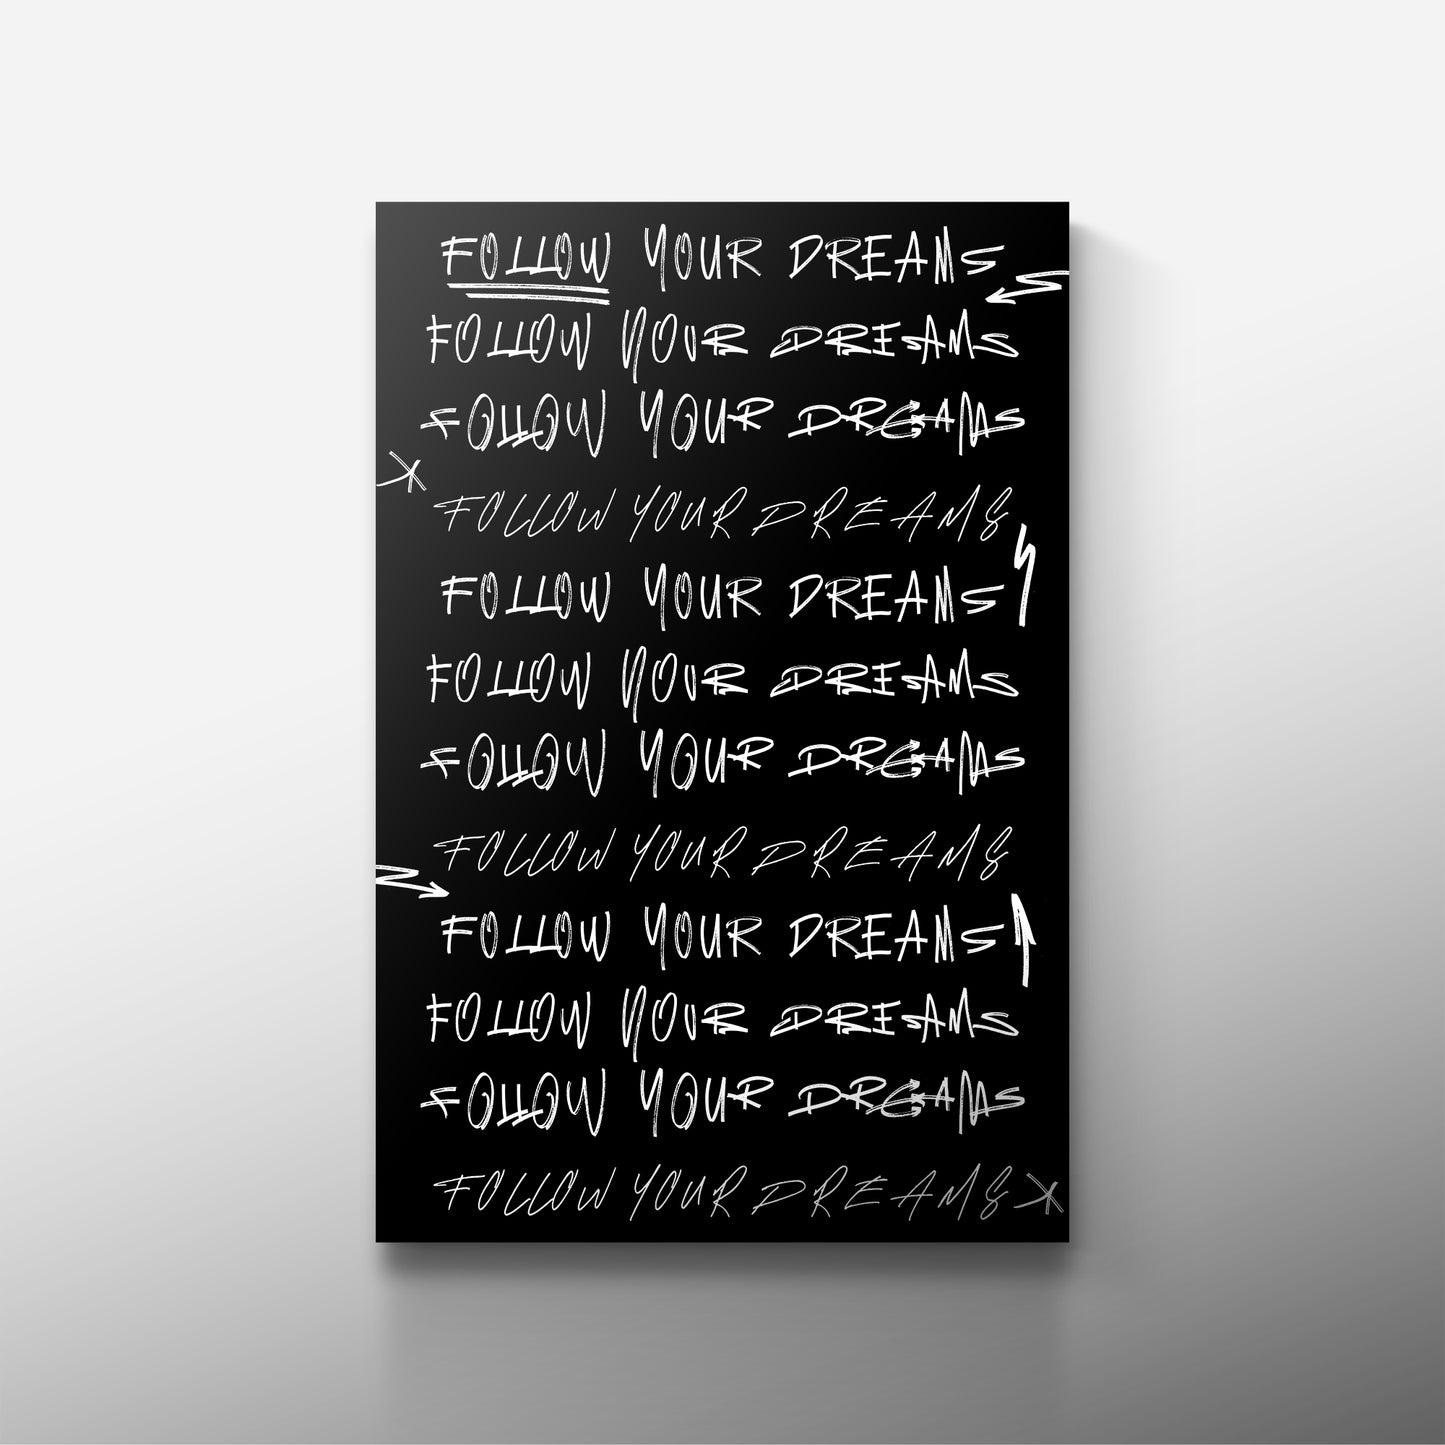 FOLLOW YOUR DREAMS
FOLLOW YOUR DREAMS
FOLLOW YOUR DREAMS
FOLLOW YOUR DREAMS
FOLLOW YOUR DREAMS
FOLLOW YOUR DREAMS
FOLLOW YOUR DREAMS
FOLLOW YOUR DREAMS
FOLLOW YOUR DREAMS
FOLLOW YOUR DREAMS
FOLLOW YOUR DREAMS
FOLLOW YOUR DREAMS